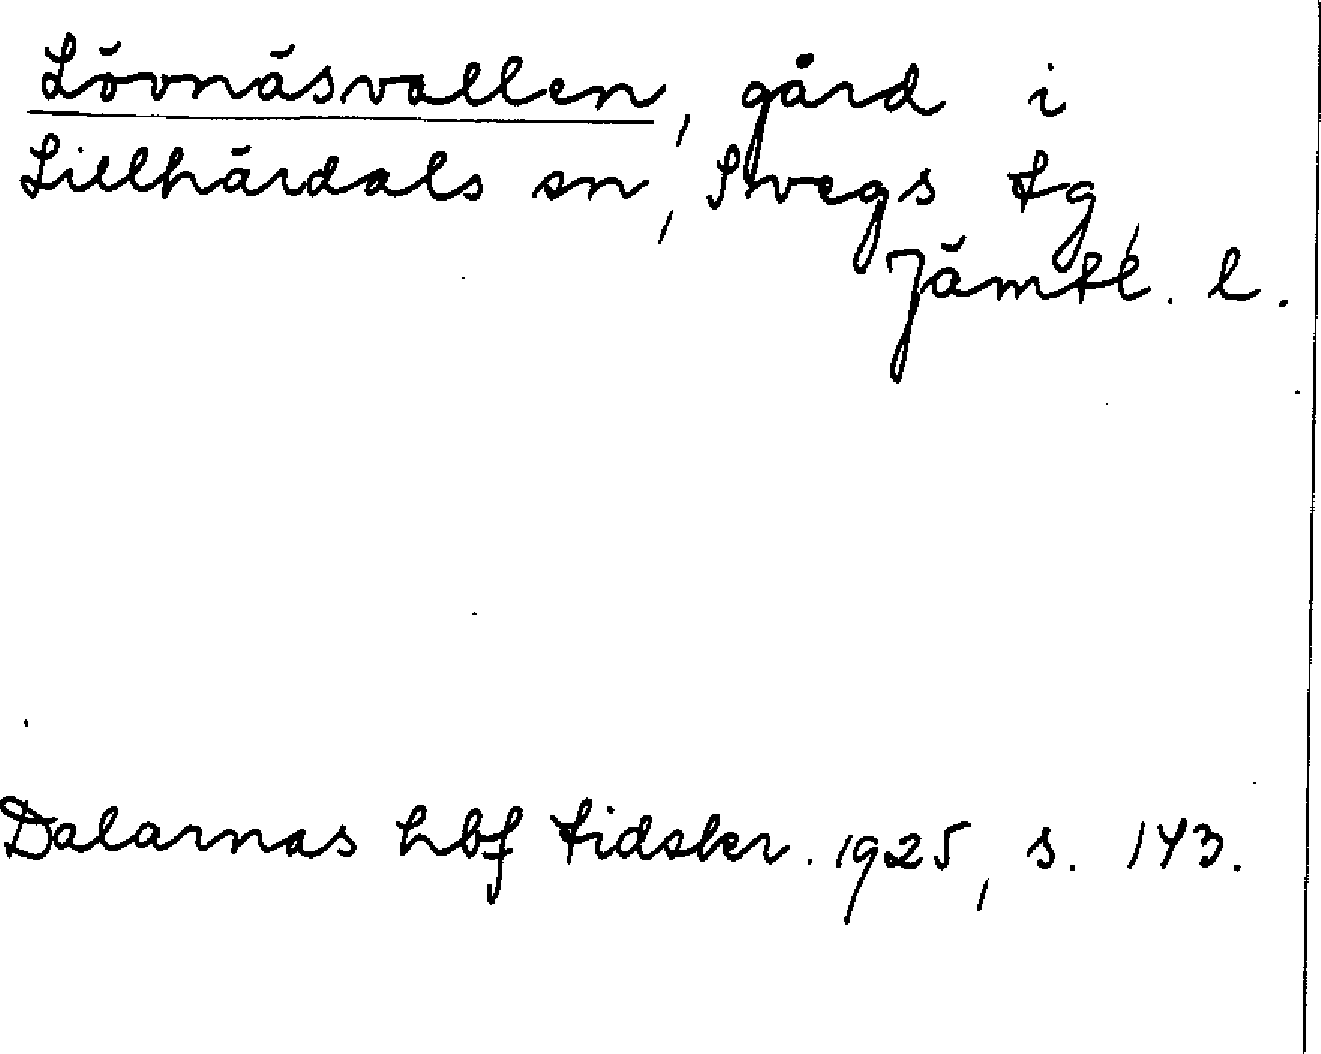 Lövnäsvallen, gård i
Lillhärdals sn, Svegs tg,
Jämtl. l.
Dalarnas hbf tidskr. 1925, s. 143.